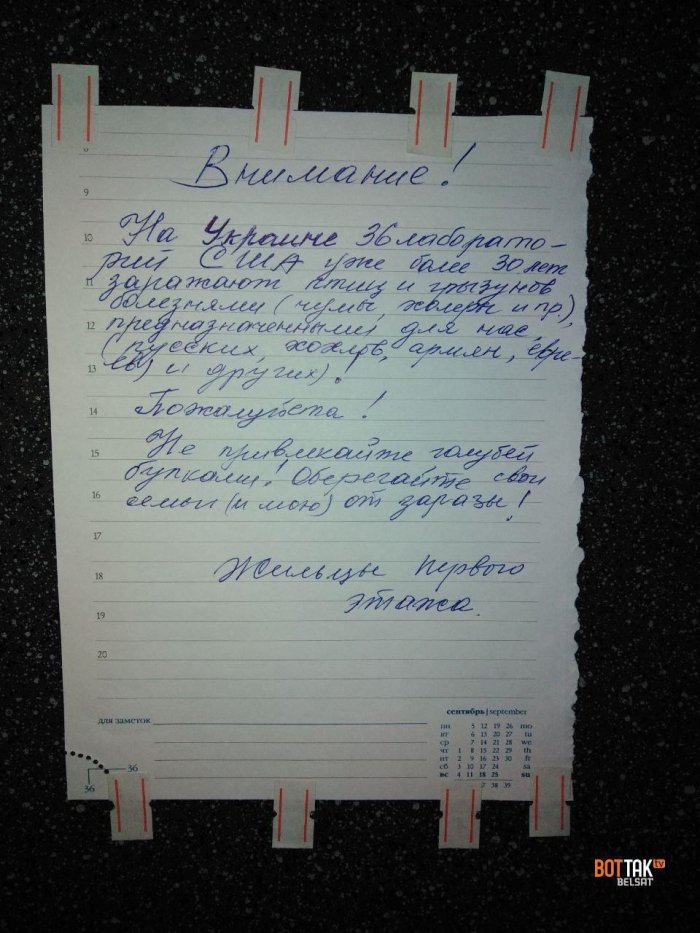 8
Внимание!
9
10 На Украине 36 лаборато-
рий США уже более 30 лет
11 заражают птиц и грызунов
болезнями (чумы, холеры и пр.),
12 предназначенными для нас,
(русских, хохлов, армян, евре-
13 ев) и других)!
14 Пожалуйста!
15 Не привлекайте голубей
булками! Оберегайте свои
16 семьи (и мою) от заразы!
17
18 Жильцы первого
этажа.
19
20
для заметок
сентябрь | september
пн 5 12 19 26 mo
вт 6 13 20 27 tu
ср 7 14 21 28 we
чт 1 8 15 22 29 th
пт 2 9 16 23 30 fr
сб 3 10 17 24 sa
вс 4 11 18 25 su
37 38 39
36
36
ВОТТАК tv
BELSAT